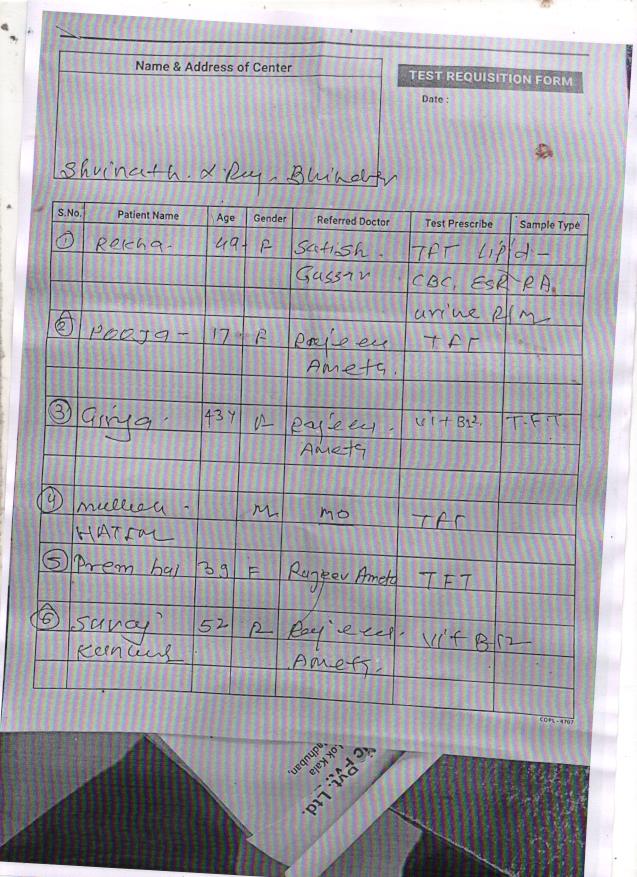 Name & Address of Center
TEST REQUISITION FORM
Date :
Shrinath. X Ray - Bhinder
S.No. Patient Name Age Gender Referred Doctor Test Prescribe Sample Type
① Rekha - 49 F Satish. TFT Lipid -
Gussar CBC, ESR RA.
urine R/M
② Pooja - 17 F Rajeev TFT
Ameta.
③ Girja - 43Y F Rajeev - Vit B12. T.F.T
Ameta
④ M MO TFT
⑤ Prem bai 39 F Rajeev Ameta TFT
⑥ 52 F Rajeev - Vit B12
Ameta.
COPL-4707
Pvt. Ltd.
Lok Kala
adhuban,